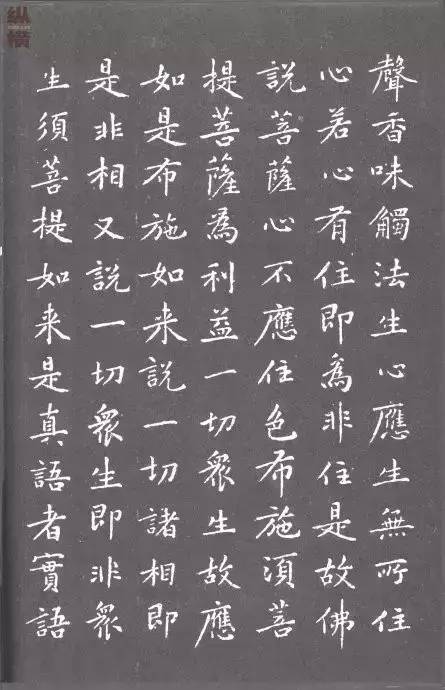 聲香味觸法生心應生無所住
心若心有住即為非住是故佛
說菩薩心不應住色布施須菩
提菩薩為利益一切眾生故應
如是布施如来說一切諸相即
是非相又說一切眾生即非眾
生須菩提如来是真語者實語
纵橫